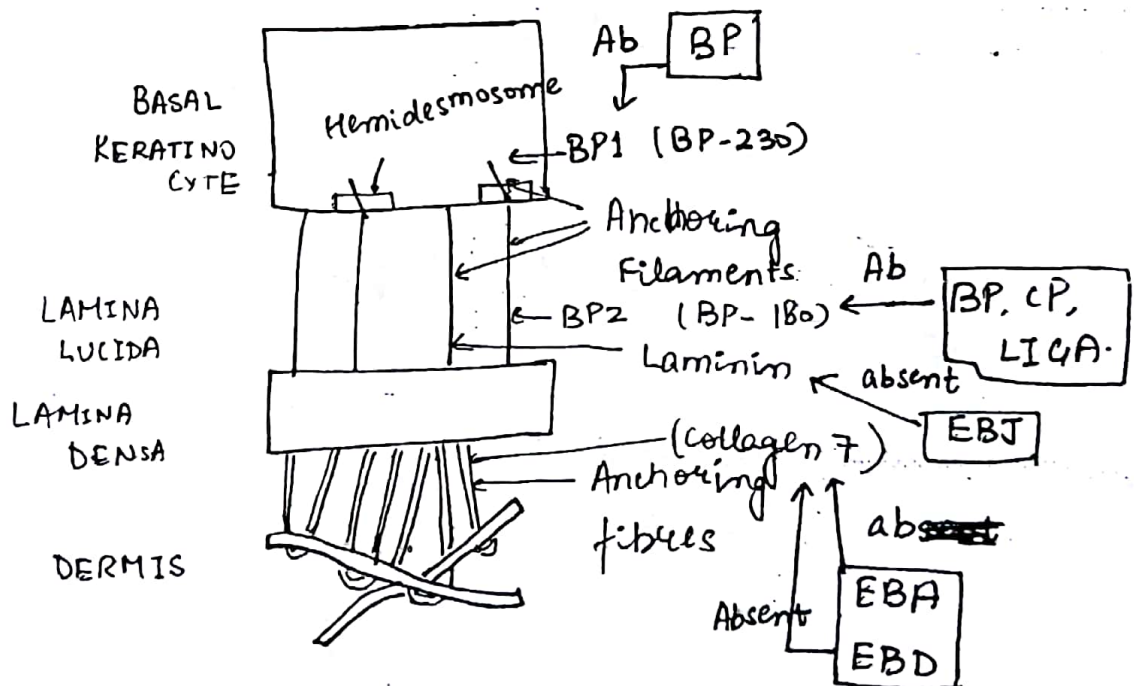 Ab BP
BASAL
KERATINO
CYTE
Hemidesmosome
BP1 (BP-230)
Anchoring
Filaments
Ab
BP, CP,
LIGA.
LAMINA
LUCIDA
BP2 (BP-180)
Laminin
absent
EBJ
LAMINA
DENSA
(Collagen 7)
Anchoring
fibres
ab
DERMIS
Absent
EBA
EBD